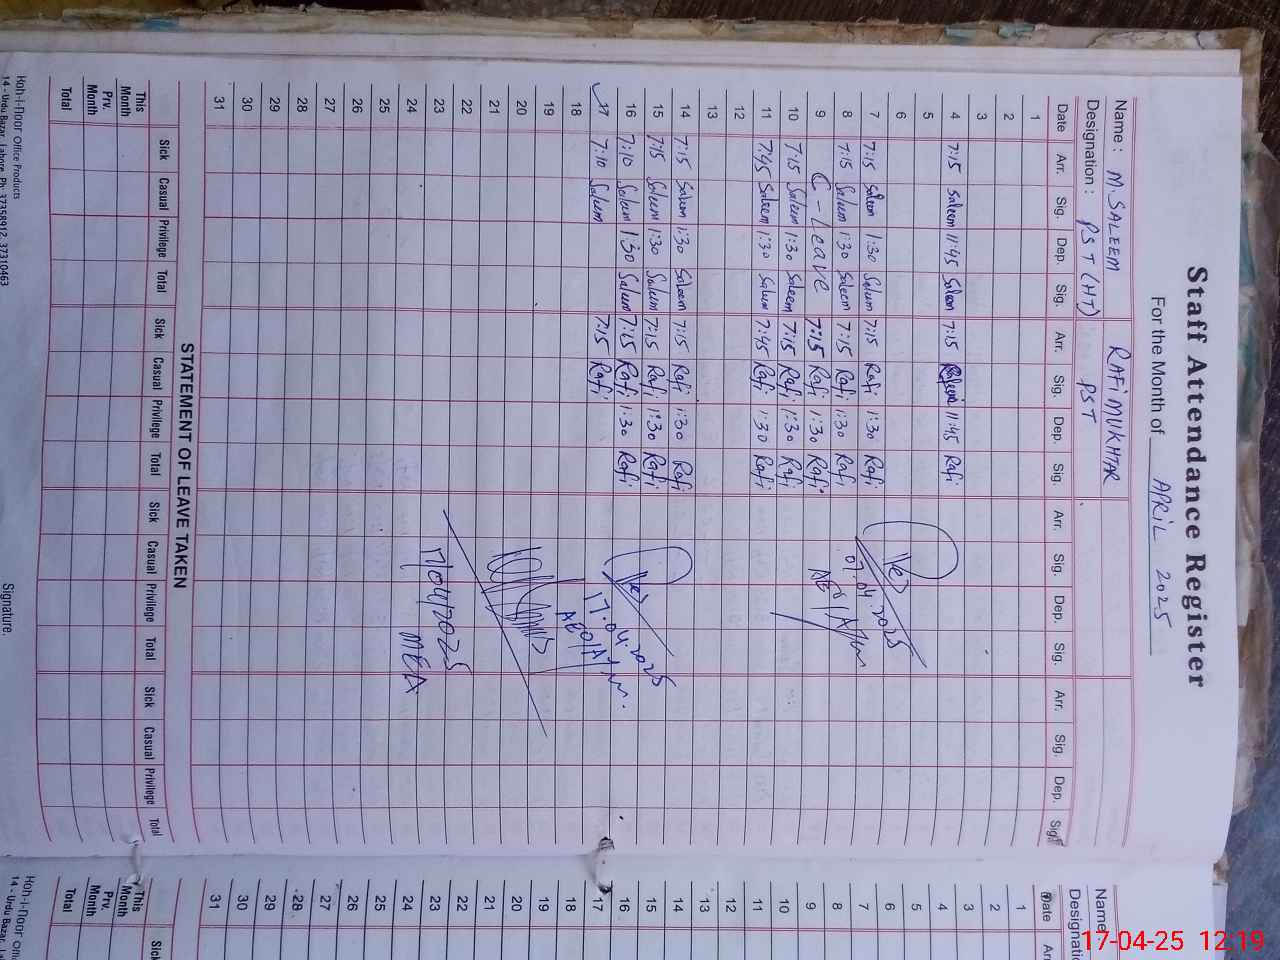 Staff Attendance Register
For the Month of APRIL 2025
Name : M. SALEEM RAFI MUKHTAR
Designation : PST (HT) PST
Date Arr. Sig. Dep. Sig. Arr. Sig. Dep. Sig. Arr. Sig. Dep. Sig. Arr. Sig. Dep. Sig.
1
2
3
4 7:15 Saleem 11:45 Saleem 7:15 11:45 Rafi
5
6
7 7:15 Saleem 1:30 Saleem 7:15 Rafi 1:30 Rafi
8 7:15 Saleem 1:30 Saleem 7:15 Rafi 1:30 Rafi
9 C-Leave 7:15 Rafi 1:30 Rafi
10 7:15 Saleem 1:30 Saleem 7:15 Rafi 1:30 Rafi
11 7:45 Saleem 1:30 Saleem 7:45 Rafi 1:30 Rafi
12
13
14 7:15 Saleem 1:30 Saleem 7:15 Rafi 1:30 Rafi
15 7:15 Saleem 1:30 Saleem 7:15 Rafi 1:30 Rafi
16 7:10 Saleem 1:30 Saleem 7:15 Rafi 1:30 Rafi
17 7:10 Saleem 7:15 Rafi
18
19
20
21
22
23
24
25
26
27
28
29
30
31
07.04.2025
17.04.2025
17/04/2025
MEA
STATEMENT OF LEAVE TAKEN
Sick Casual Privilege Total Sick Casual Privilege Total Sick Casual Privilege Total Sick Casual Privilege Total
This Month
Prv. Month
Total
Hoh-i-Noor Office Products
14 - Urdu Bazar, Lahore. Ph: 37358912, 37310463
Signature.
Name
Designati
Date Arr
1
2
3
4
5
6
7
8
9
10
11
12
13
14
15
16
17
18
19
20
21
22
23
24
25
26
27
28
29
30
31
Sick
This Month
Prv. Month
Total
Hoh-i-Noor Offi
14 - Urdu Bazar, La
17-04-25 12:19